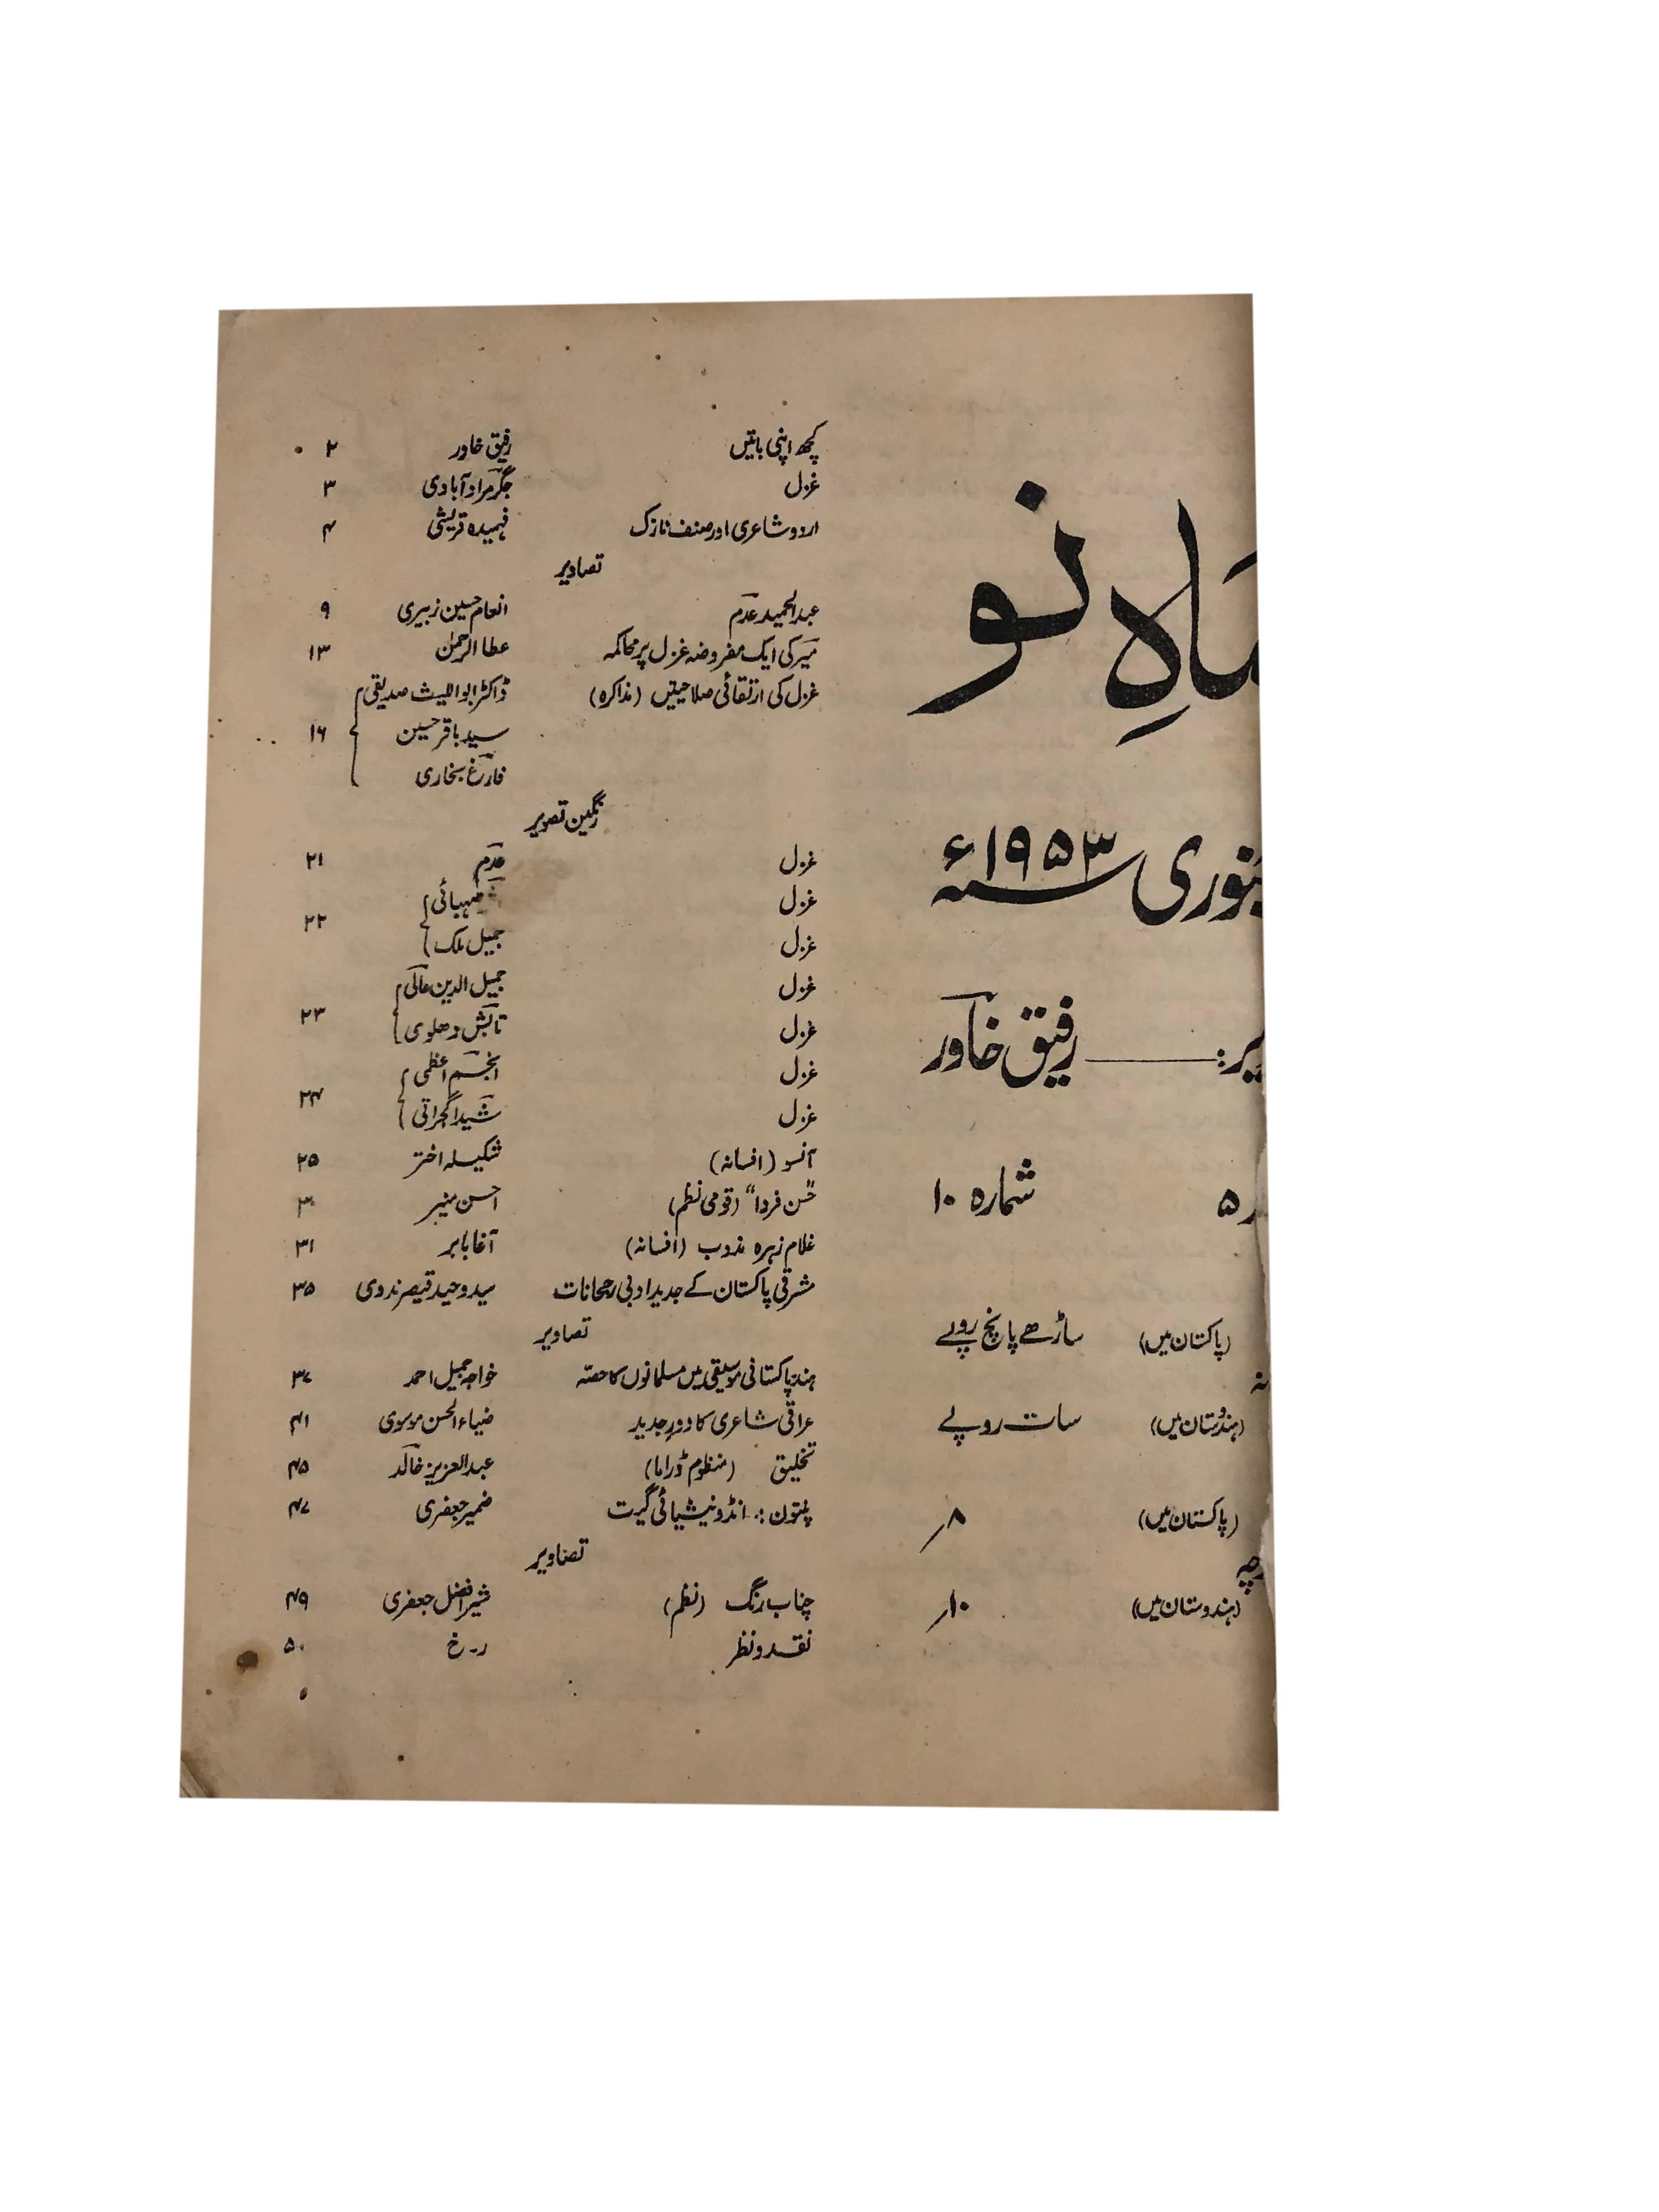 ماہِ نو
جنوری ۱۹۵۳ء
رفیق خاور
۵ شمارہ ۱۰
(پاکستان میں) ساڑھے پانچ روپے
(ہندوستان میں) سات روپے
(پاکستان میں) ۸/
(ہندوستان میں) ۱۰/
کچھ اپنی باتیں رفیق خاور ۲
غزل جگر مرادآبادی ۳
اردو شاعری اور صنف نازک فہمیدہ قریشی ۴
تصاویر
عبدالحمید عدم انعام حسین زبیری ۹
میر کی ایک مفروضہ غزل پر محاکمہ عطا الرحمٰن ۱۳
غزل کی ارتقائی صلاحیتیں (مذاکرہ) ڈاکٹر ابو اللیث صدیقی
سید باقر حسین ۱۶
فارغ بخاری
رنگین تصویر
غزل عدم ۲۱
غزل صہبائی
غزل جمیل ملک ۲۲
غزل جمیل الدین عالی
غزل تابش دھلوی ۲۳
غزل انجم اعظمی
غزل شیدا گجراتی ۲۴
آنسو (افسانہ) شکیلہ اختر ۲۵
"حُسن فردا" (قومی نظم) احسن منیر ۳۰
غلام زہرہ مذوب (افسانہ) آغا بابر ۳۱
مشرقی پاکستان کے جدید ادبی رجحانات سید وحید قیصر ندوی ۳۵
تصاویر
ہند پاکستانی موسیقی میں مسلمانوں کا حصّہ خواجہ جمیل احمد ۳۷
عراقی شاعری کا دورِ جدید ضیاء الحسن موسوی ۴۱
تخلیق (منظوم ڈراما) عبدالعزیز خالد ۴۵
پنتون: انڈونیشیائی گیت ضمیر جعفری ۴۷
تصاویر
چناب رنگ (نظم) شیر افضل جعفری ۴۹
نقد و نظر ر۔خ ۵۰